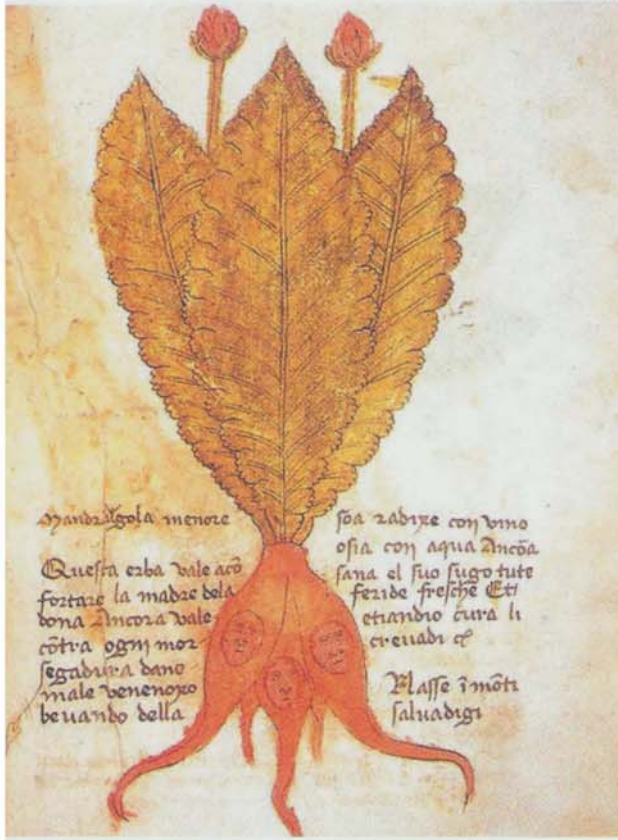 Mandragola menore
Questa erba vale acō
fortare la madre dela
dona Ancora vale
cōtra ogni mor
segadura dano
male venenoxo
bevando della
soa radixe con vino
osia con aqua Ancōa
sana el suo sugo tute
feride fresche Et
etiandio cura li
crevadi
Nasse ī mōti
salvadigi